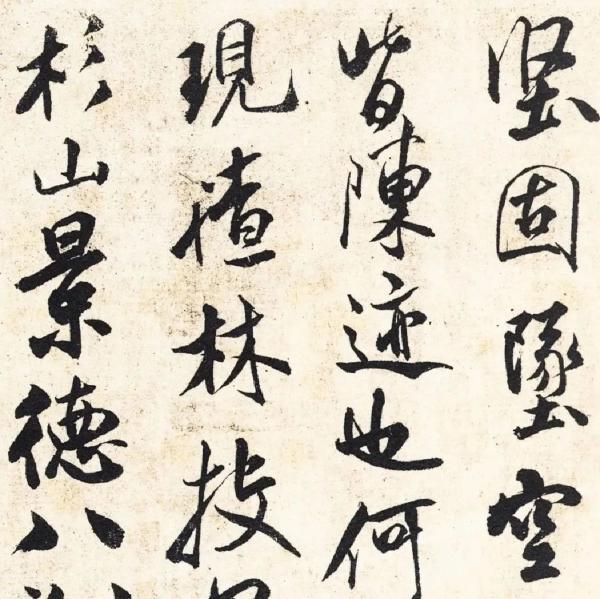 坚固墜空
皆陳迹也何
現楂林投
杉山景德八